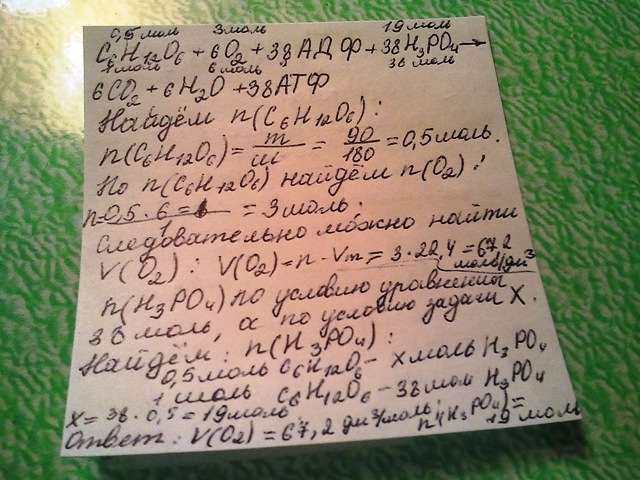 0,5 моль 3 моль 19 моль
C6H12O6 + 6O2 + 38 АДФ + 38 H3PO4 →
1 моль 6 моль 38 моль
6CO2 + 6H2O + 38 АТФ
Найдём n(C6H12O6):
n(C6H12O6) = m/M = 90/180 = 0,5 моль.
По n(C6H12O6) найдём n(O2):
n = 0,5 · 6 / 1 = 3 моль.
Следовательно можно найти
V(O2): V(O2) = n · Vm = 3 · 22,4 = 67,2
моль/дм3
n(H3PO4) по условию уравнения
38 моль, а по условию задачи X.
Найдём: n(H3PO4):
0,5 моль C6H12O6 – X моль H3PO4
1 моль C6H12O6 – 38 моль H3PO4
X = 38 · 0,5 = 19 моль
Ответ: V(O2) = 67,2 дм3/моль; n(H3PO4) =
19 моль